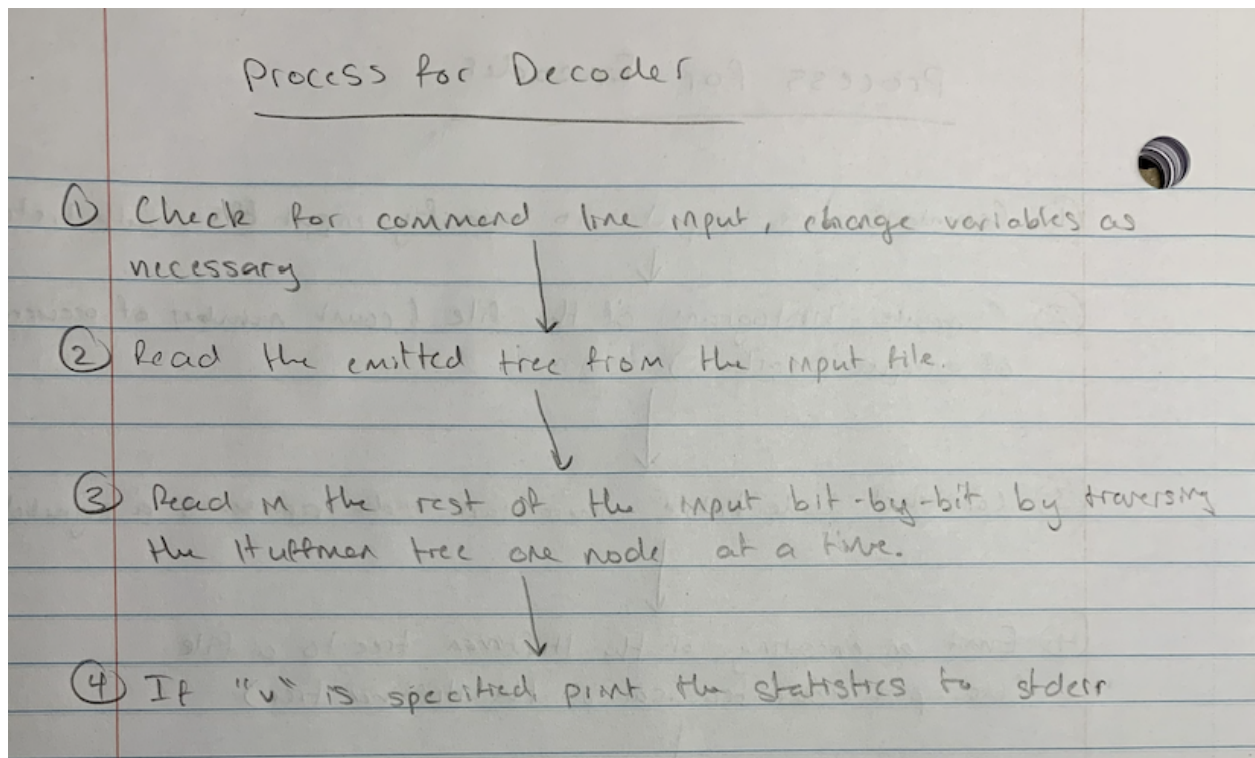 Process for Decoder
① Check for command line input, change variables as
necessary
② Read the emitted tree from the input file.
③ Read in the rest of the input bit-by-bit by traversing
the Huffman tree one node at a time.
④ If "v" is specified print the statistics to stderr